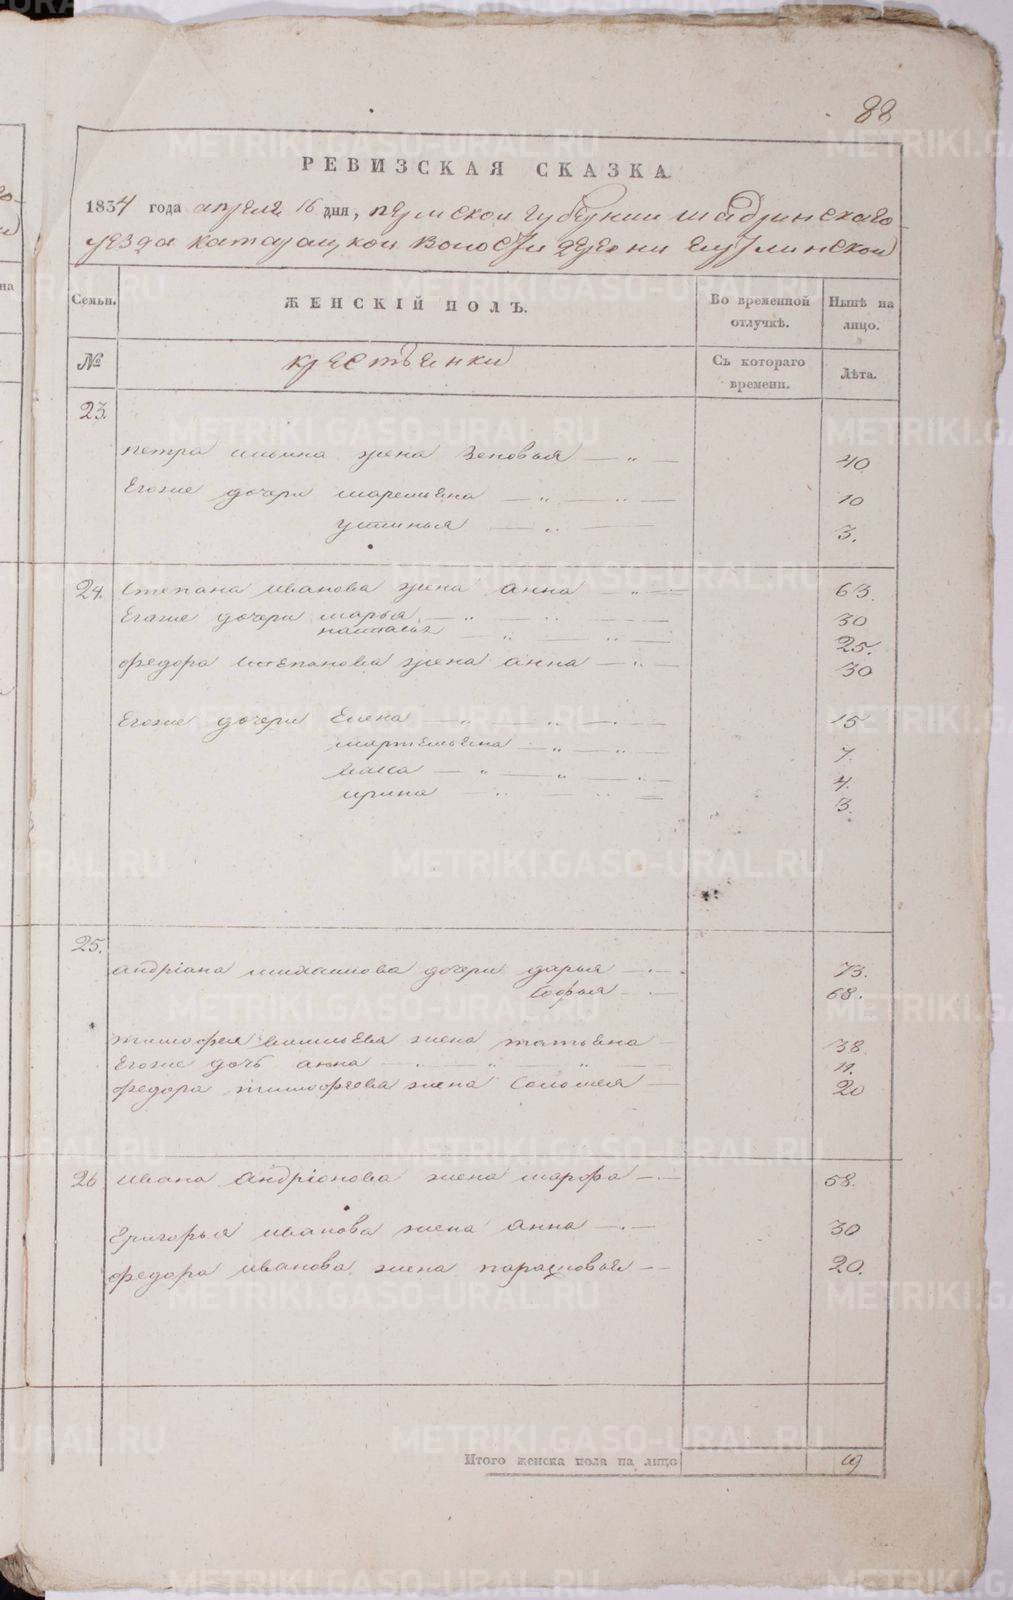 88
РЕВИЗСКАЯ СКАЗКА
1834 года апреля 16 дня, пермской губернии шадринского
уезда катайцкой волости деревни
Семьи.
ЖЕНСКІЙ ПОЛЪ.
Во временной отлучкѣ.
Нынѣ на лицо.
№
крестьенки
Съ котораго времени.
Лѣта.
23.
петра ильина жена Зеновья — " — 40
Егоже дочери маремьена — " — " — 10
устинья — " — 3.
24. Степана иванова жена анна — " — 63.
Егоже дочери марья — " — " — 30
настасья — " — " — 25.
федора степанова жена анна — " — 30
Егоже дочери Елена — " — " — 15
мартемьена — " — " — 7.
— " — " — 4.
ирина — " — " — 3.
25.
андріана михаилова дочери дарья — 73.
Софья — 68.
тимофея жена татьена — 38
Егоже дочь анна — " — " — 11.
федора тимофеева жена Соломея — 20
26 ивана андріонова жена марфа — 58.
Григорья иванова жена анна — 30
федора иванова жена парасковья — 20.
Итого женска пола на лицо 19
METRIKI.GASO-URAL.RU